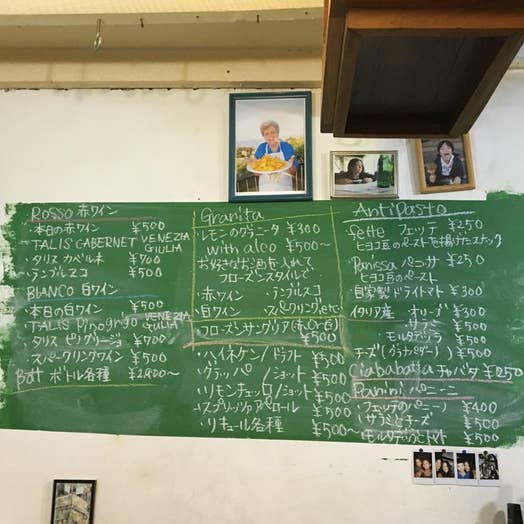 Rosso 赤ワイン
・本日の赤ワイン ¥500
TALIS CABERNET VENEZIA GIULIA
・タリス カベルネ ¥700
・ランブルスコ ¥500
BIANCO 白ワイン
・本日の白ワイン ¥500
・TALIS Pinogrigio VENEZIA GIULIA
・タリス ピノグリージョ ¥700
・スパークリングワイン ¥500
Bott ボトル各種 ¥2,900〜
Granita
レモンのグラニータ ¥300
with alco ¥500〜
お好きなお酒を入れて
フローズンスタイルで
・赤ワイン ・ランブルスコ
・白ワイン ・スパークリングetc
・フローズンサングリア(赤 or 白)
¥500
・ハイネケン/ドラフト ¥500
・グラッパ /ショット ¥500
・リモンチェッロ/ショット ¥500
・スプリッツァアペロール ¥500
・リキュール各種 ¥500〜
AntiPasto
fette フェッテ ¥250
ヒヨコ豆のペーストを揚げたスナック
Panissa パニッサ ¥250
ヒヨコ豆のペースト
・自家製ドライトマト ¥300
イタリア産 オリーブ ¥300
・サラミ ¥500
・モルタデッラ ¥500
チーズ(グラナパダーノ) ¥500
Ciabatta チャバタ ¥250
Panini パニーニ
・フェッテのパニーノ ¥400
・サラミとチーズ ¥500
・モルタデッラとトマト ¥500